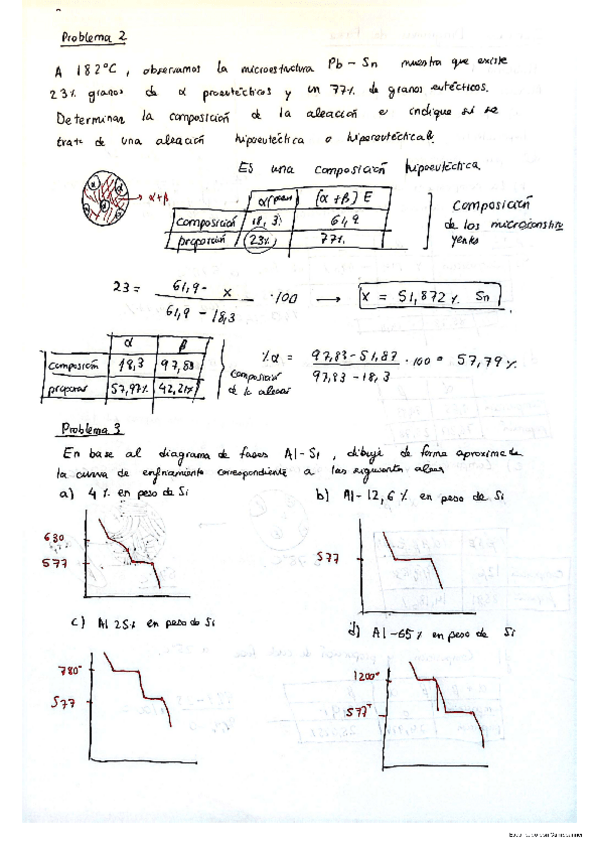 Problema 2
A 182ºC, observamos la microestructura Pb-Sn muestra que existe
23% granos de α proeutécticos y un 77% de granos eutécticos.
Determinar la composición de la aleación e indique si se
trata de una aleación hipoeutéctica o hipereutéctica.
Es una composición hipoeutéctica.
α α → α+β
α (proeu) (α+β) E
composición 18,3% 61,9
proporción 23% 77%
composición
de los microconstitu
yentes
23 = 61,9 - x / 61,9 - 18,3 · 100 → x = 51,872% Sn
α β
composición 18,3 97,83
proporción 57,97% 42,21%
composición
de la aleación
%α = 97,83-51,87 / 97,83-18,3 · 100 = 57,79%
Problema 3
En base al diagrama de fases Al-Si, dibuje de forma aproximada
la curva de enfriamiento correspondiente a las siguientes
a) 4% en peso de Si
b) Al-12,6% en peso de Si
630
577
577
c) Al 25% en peso de Si
d) Al-65% en peso de Si
780º
577
1200º
577º